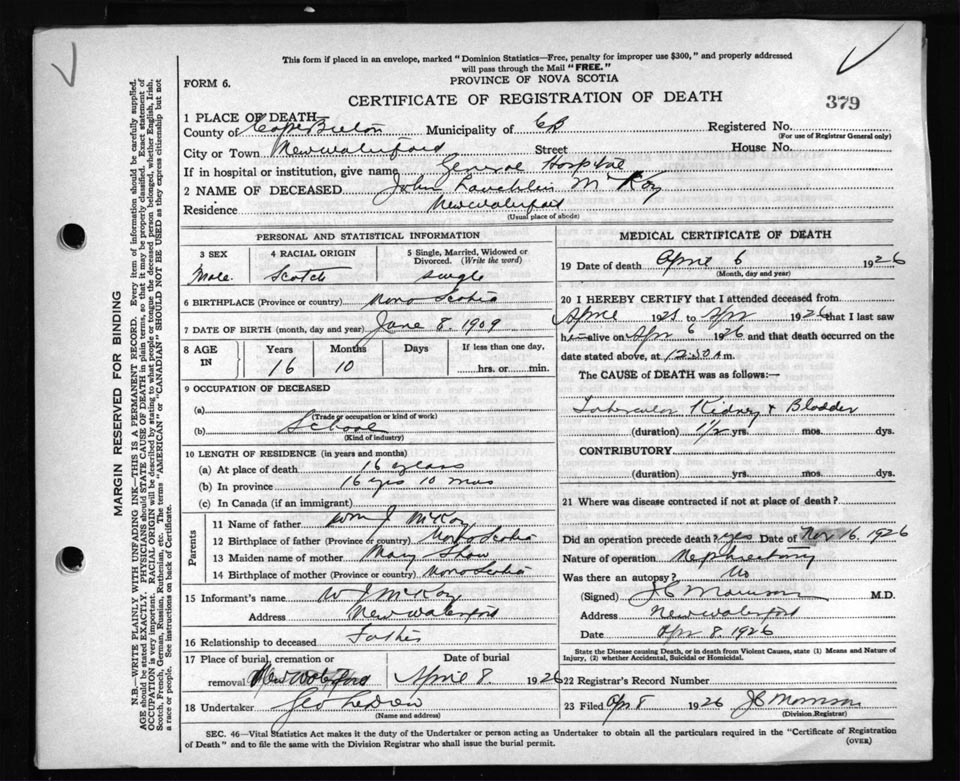 This form if placed in an envelope, marked "Dominion Statistics—Free, penalty for improper use $300," and properly addressed
will pass through the Mail "FREE."
FORM 6.
PROVINCE OF NOVA SCOTIA
CERTIFICATE OF REGISTRATION OF DEATH
379
1 PLACE OF DEATH
County of Cape Breton Municipality of CB Registered No.
(For use of Registrar General only)
City or Town New Waterford Street House No.
If in hospital or institution, give name General Hospital
2 NAME OF DECEASED John Lauchlin McKay
Residence New Waterford
(Usual place of abode)
PERSONAL AND STATISTICAL INFORMATION
3 SEX 4 RACIAL ORIGIN 5 Single, Married, Widowed or Divorced. (Write the word)
Male. Scotch single
6 BIRTHPLACE (Province or country) Nova Scotia
7 DATE OF BIRTH (month, day and year) June 8. 1909
8 AGE IN Years Months Days If less than one day,
16 10 hrs. or min.
9 OCCUPATION OF DECEASED
(a)
(Trade or occupation or kind of work)
(b) School
(Kind of industry)
10 LENGTH OF RESIDENCE (in years and months)
(a) At place of death 16 years
(b) In province 16 yrs 10 mos
(c) In Canada (if an immigrant)
Parents
11 Name of father Wm J McKay
12 Birthplace of father (Province or country) Nova Scotia
13 Maiden name of mother Mary Shaw
14 Birthplace of mother (Province or country) Nova Scotia
15 Informant's name W J McKay
Address New Waterford
16 Relationship to deceased Father
17 Place of burial, cremation or removal New Waterford Date of burial April 8 1926
18 Undertaker Geo
(Name and address)
MEDICAL CERTIFICATE OF DEATH
19 Date of death April 6 1926
(Month, day and year)
20 I HEREBY CERTIFY that I attended deceased from
April 1925 to Apr 1926 that I last saw
h alive on Apr 6 1926 and that death occurred on the
date stated above, at 12:30 A m.
The CAUSE of DEATH was as follows:—
Tubercular Kidney & Bladder
(duration) 1 1/2 yrs. mos. dys.
CONTRIBUTORY
(duration) yrs. mos. dys.
21 Where was disease contracted if not at place of death?
Did an operation precede death? yes Date of Nov 16. 1926
Nature of operation Nephrectomy
Was there an autopsy? No
(Signed) J C Morrison M.D.
Address New Waterford
Date Apr 8. 1926
State the Disease causing Death, or in death from Violent Causes, state (1) Means and Nature of
Injury, (2) whether Accidental, Suicidal or Homicidal.
22 Registrar's Record Number
23 Filed Apr 8 1926 J C Morrison
(Division Registrar)
SEC. 46—Vital Statistics Act makes it the duty of the Undertaker or person acting as Undertaker to obtain all the particulars required in the "Certificate of Registration
of Death" and to file the same with the Division Registrar who shall issue the burial permit.
(OVER)
MARGIN RESERVED FOR BINDING
N.B.—WRITE PLAINLY WITH UNFADING INK—THIS IS A PERMANENT RECORD. Every item of information should be carefully supplied.
AGE should be stated EXACTLY. PHYSICIANS should STATE CAUSE OF DEATH in plain terms, so that it may be properly classified. Exact statement of
OCCUPATION is very important. RACIAL ORIGIN will be described by stating to what people or tongue the deceased person belonged, whether English, Irish,
Scotch, French, German, Russian, Ruthenian, etc. The terms "AMERICAN" or "CANADIAN" SHOULD NOT BE USED as they express citizenship but not
a race or people. See instructions on back of Certificate.